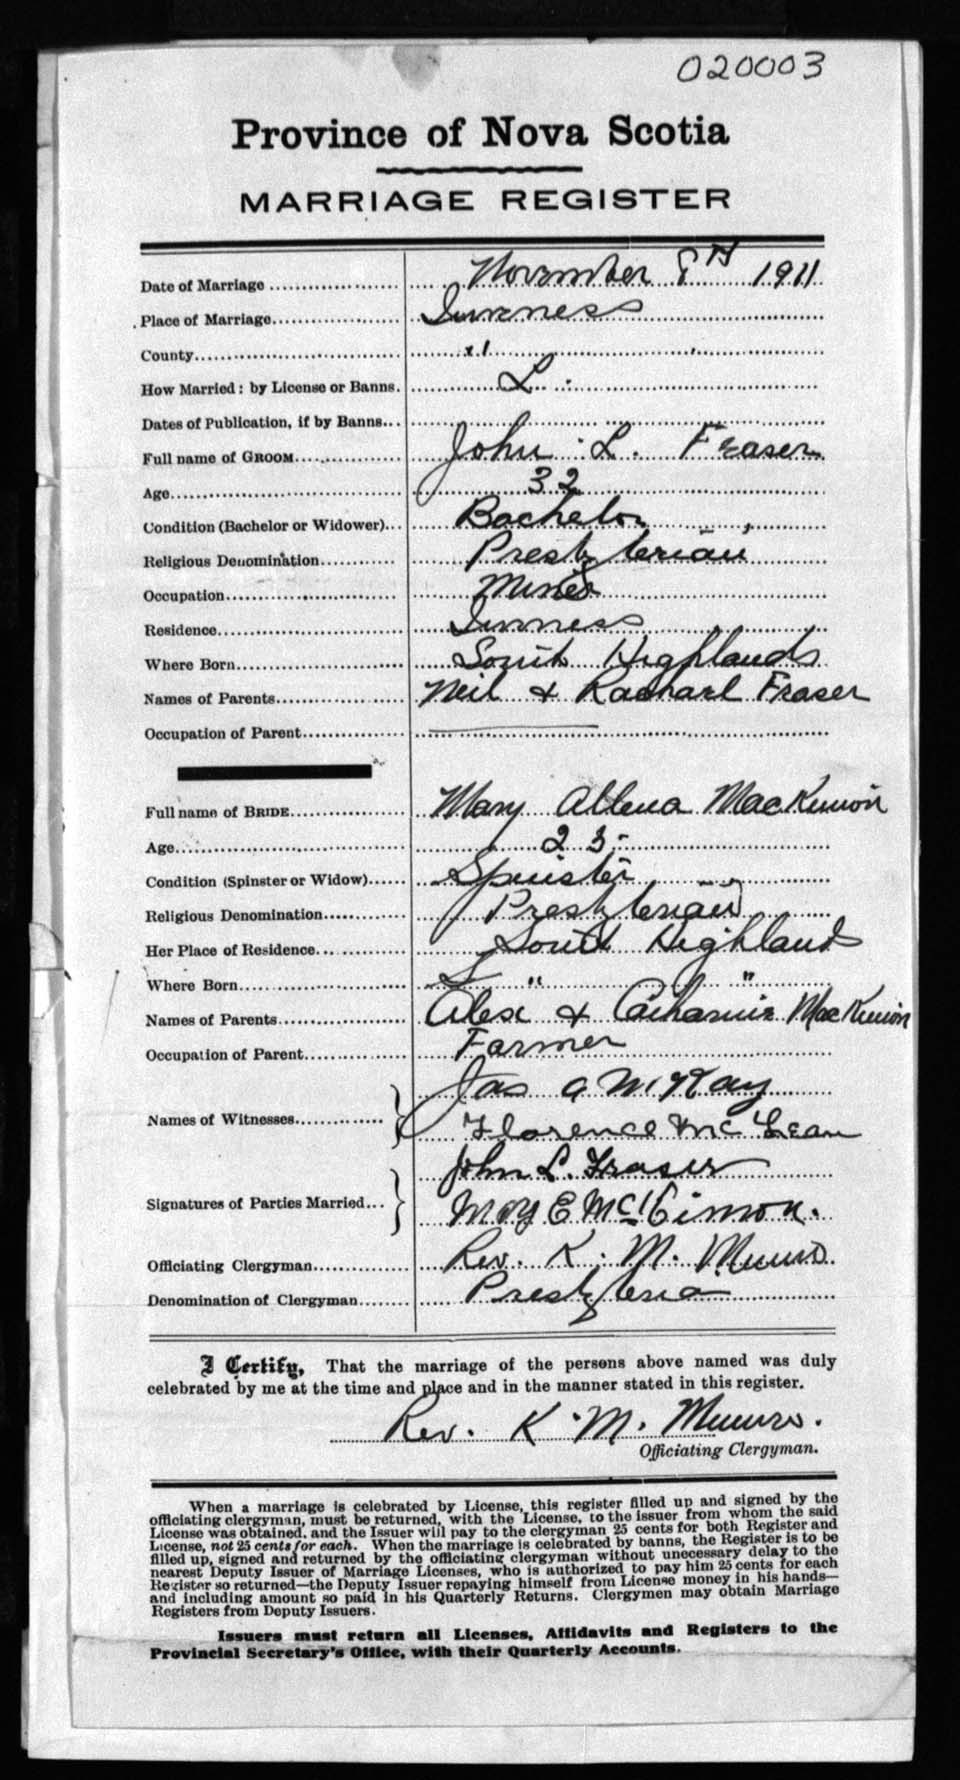 020003
Province of Nova Scotia
MARRIAGE REGISTER
Date of Marriage November 8TH 1911
Place of Marriage Inverness
County "
How Married: by License or Banns. L.
Dates of Publication, if by Banns
Full name of GROOM John L. Fraser
Age 32
Condition (Bachelor or Widower) Bachelor
Religious Denomination Presbyterian
Occupation Miner
Residence Inverness
Where Born South Highlands
Names of Parents Neil & Rachael Fraser
Occupation of Parent
Full name of BRIDE Mary Allena MacKinnon
Age 23
Condition (Spinster or Widow) Spinster
Religious Denomination Presbyterian
Her Place of Residence South Highland
Where Born " "
Names of Parents Alex & Catharine MacKinnon
Occupation of Parent Farmer
Jas A McKay
Names of Witnesses
Florence McLean
John L. Fraser
Signatures of Parties Married
May E McKinnon.
Officiating Clergyman Rev. K. M. Munro
Denomination of Clergyman Presbyteria
I Certify, That the marriage of the persons above named was duly
celebrated by me at the time and place and in the manner stated in this register.
Rev. K. M. Munro.
Officiating Clergyman.
When a marriage is celebrated by License, this register filled up and signed by the
officiating clergyman, must be returned, with the License, to the issuer from whom the said
License was obtained, and the Issuer will pay to the clergyman 25 cents for both Register and
License, not 25 cents for each. When the marriage is celebrated by banns, the Register is to be
filled up, signed and returned by the officiating clergyman without unnecessary delay to the
nearest Deputy Issuer of Marriage Licenses, who is authorized to pay him 25 cents for each
Register so returned—the Deputy Issuer repaying himself from License money in his hands—
and including amount so paid in his Quarterly Returns. Clergymen may obtain Marriage
Registers from Deputy Issuers.
Issuers must return all Licenses, Affidavits and Registers to the
Provincial Secretary's Office, with their Quarterly Accounts.